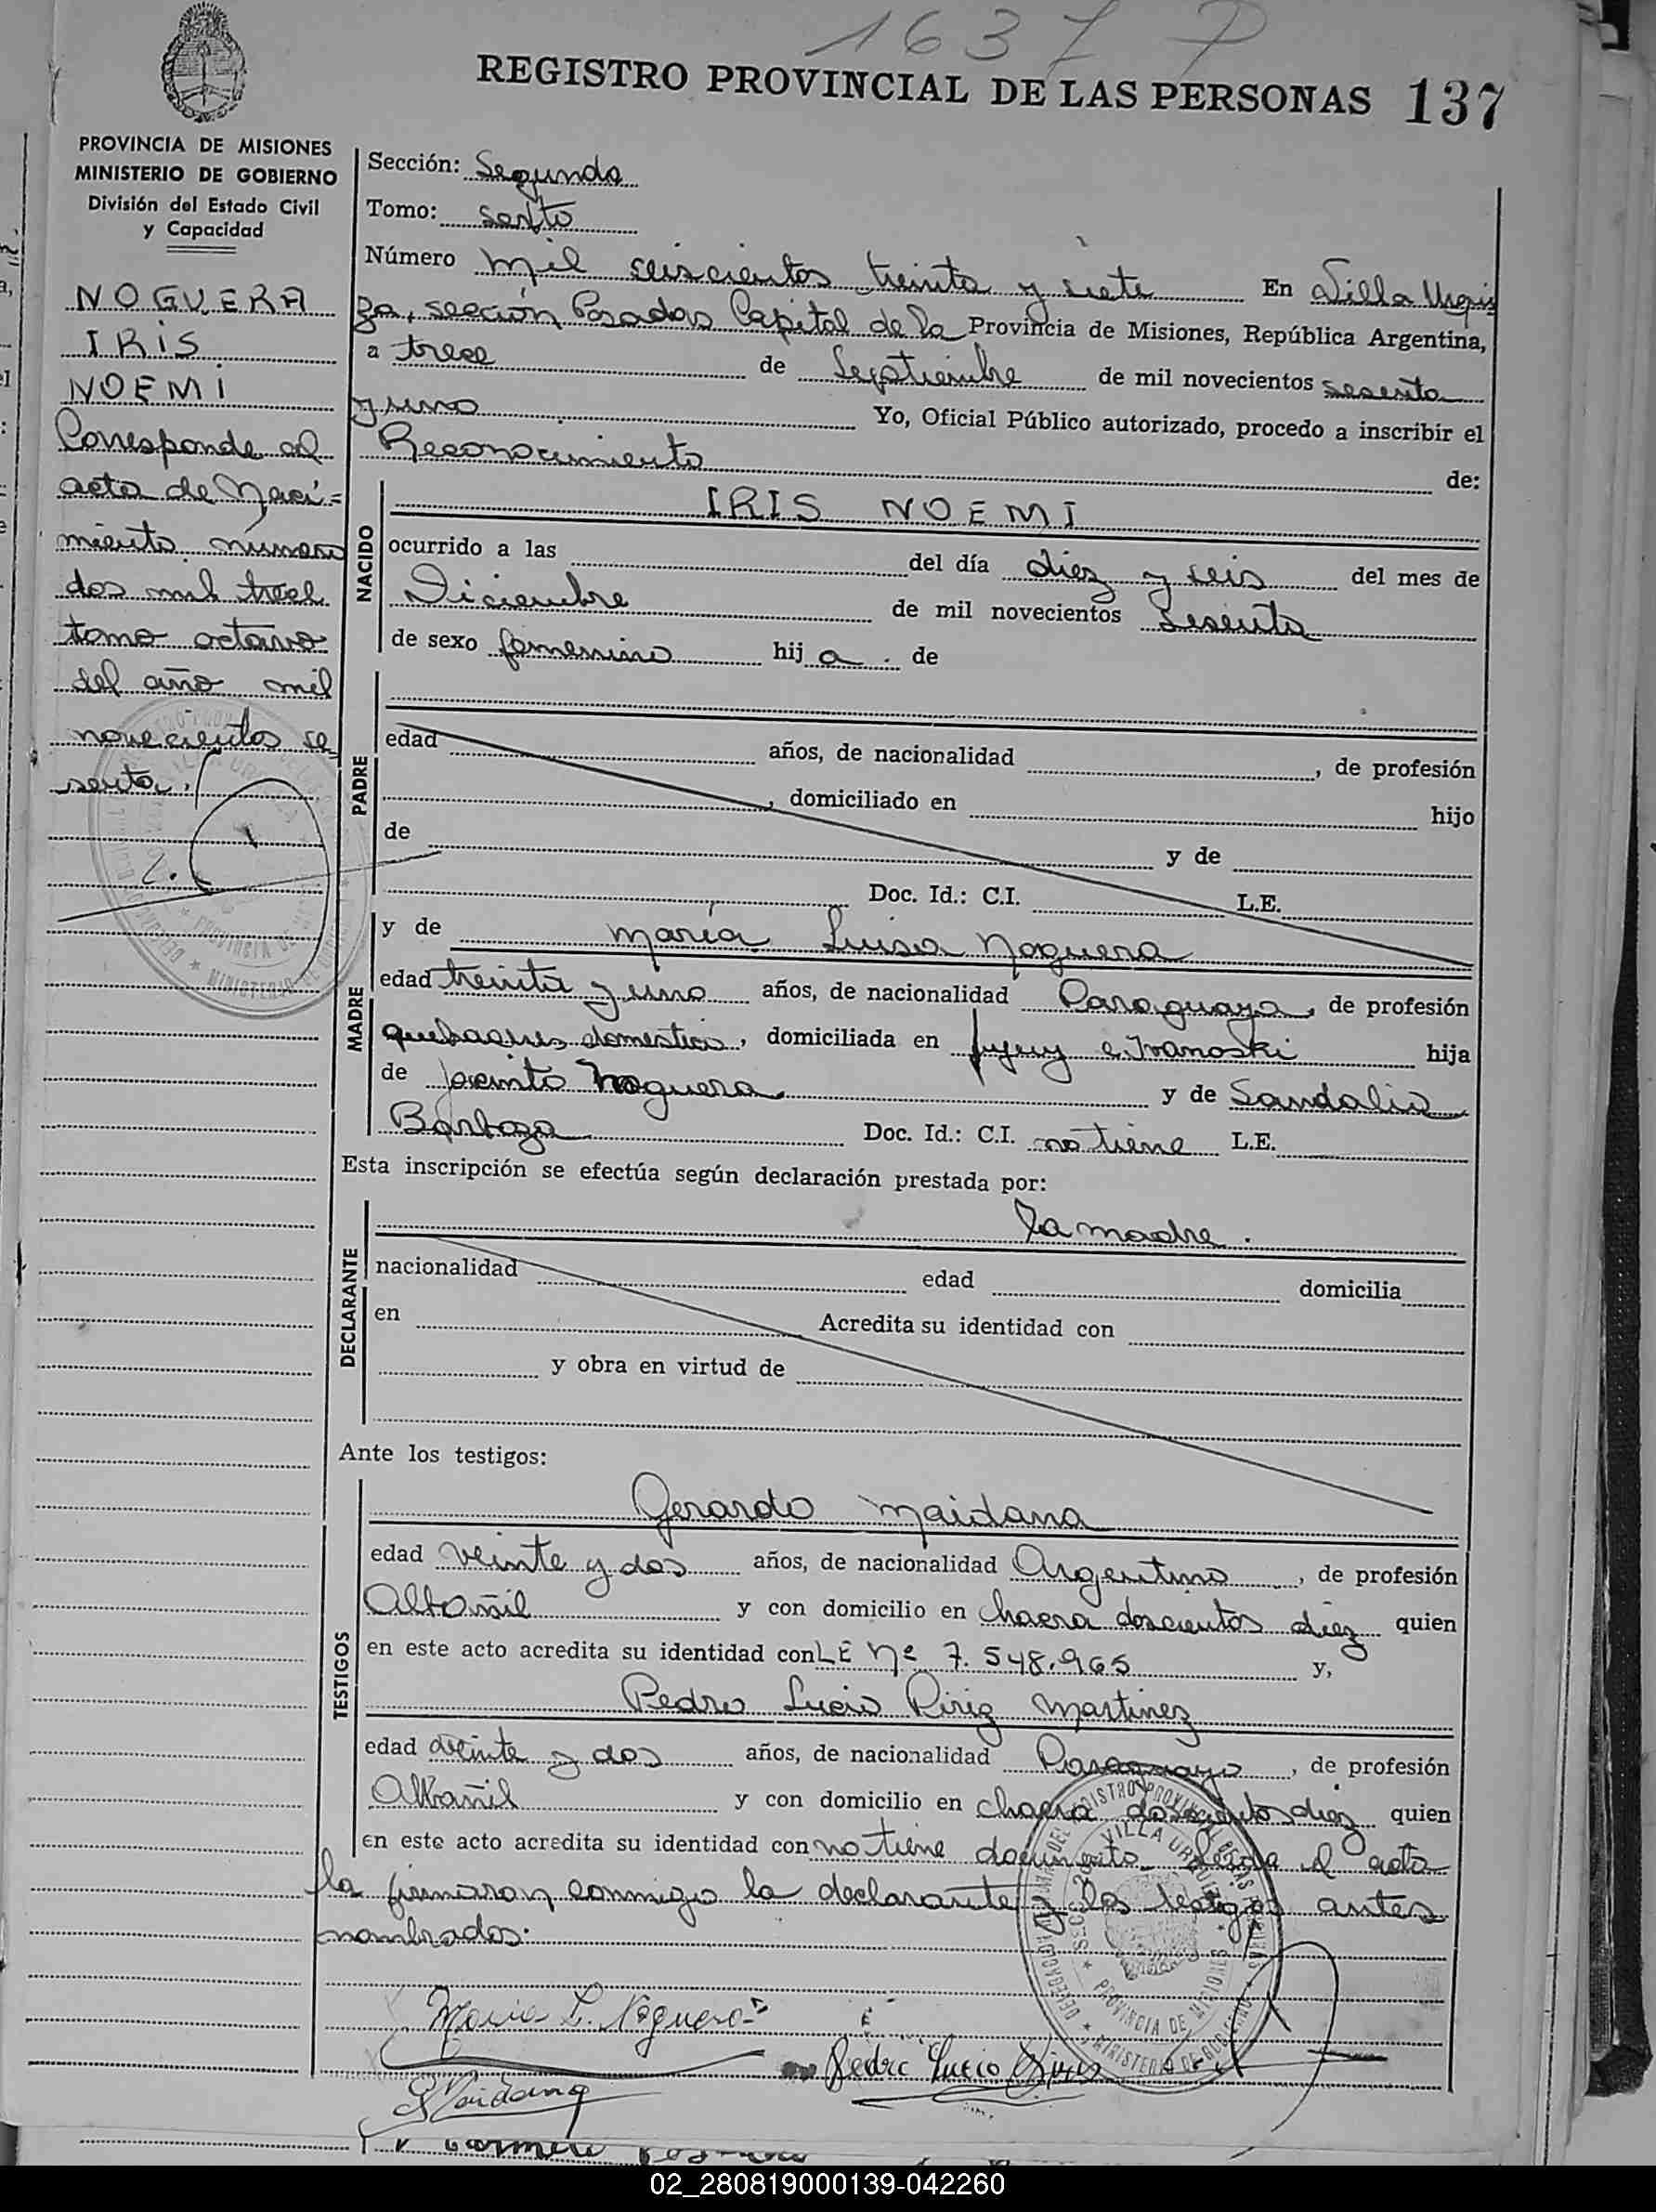 1637
REGISTRO PROVINCIAL DE LAS PERSONAS 137
PROVINCIA DE MISIONES
MINISTERIO DE GOBIERNO
División del Estado Civil
y Capacidad
NOGUERA
IRIS
NOEMI
Corresponde al
acta de Naci=
miento número
dos mil trece
tomo octavo
del año mil
novecientos se
senta.
Sección: Segunda
Tomo: sexto
Número mil seiscientos treinta y siete En Villa Urquiz
za, sección Posadas Capital de la Provincia de Misiones, República Argentina,
a trece de Septiembre de mil novecientos sesenta
y uno Yo, Oficial Público autorizado, procedo a inscribir el
Reconocimiento de:
NACIDO
IRIS NOEMI
ocurrido a las del día diez y seis del mes de
Diciembre de mil novecientos Sesenta
de sexo femenino hija. de
PADRE
edad años, de nacionalidad , de profesión
, domiciliado en hijo
de y de
Doc. Id.: C.I. L.E.
MADRE
y de María Luisa Noguera
edad treinta y uno años, de nacionalidad Paraguaya, de profesión
quehaceres domesticos, domiciliada en Jujuy e Ivanoski hija
de Jacinto Noguera y de Sandalia
Barboza Doc. Id.: C.I. no tiene L.E.
Esta inscripción se efectúa según declaración prestada por:
DECLARANTE
la madre.
nacionalidad edad domicilia
en Acredita su identidad con
y obra en virtud de
Ante los testigos:
TESTIGOS
Gerardo Maidana
edad veinte y dos años, de nacionalidad Argentino, de profesión
Albañil y con domicilio en chacra doscientos diez quien
en este acto acredita su identidad con LE Nº 7.548.965 y,
Pedro Lucio Piriz Martinez
edad veinte y dos años, de nacionalidad Paraguayo, de profesión
Albañil y con domicilio en chacra doscientos diez quien
en este acto acredita su identidad con no tiene documento. Leida el acta
la firmaron conmigo la declarante y los testigos antes
nombrados.
Maria L. Noguera
Pedro Lucio Piris
G Maidana
02_280819000139-042260